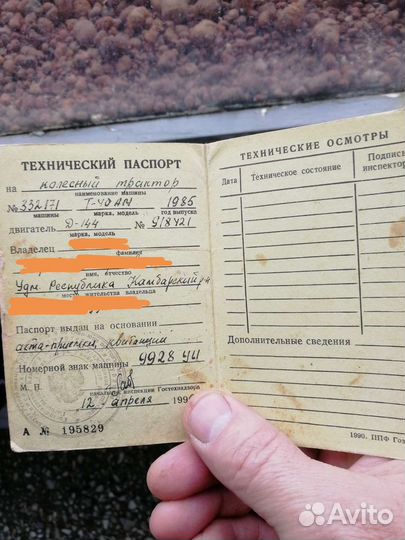 ТЕХНИЧЕСКИЙ ПАСПОРТ
на колесный трактор
наименование машины
№ 332171 Т-40АМ 1985
машины марка, модель год выпуска
двигатель Д-144 № 918421
марка, модель
Владелец
фамилия
имя, отчество
Удм. Республика Камбарский
место жительства владельца
Паспорт выдан на основании
акта-приемки, квитанции
Номерной знак машины 9928 УИ
М. П.
начальник инспекции Гостехнадзора
12 апреля 199
А № 195829
ТЕХНИЧЕСКИЕ ОСМОТРЫ
Дата Техническое состояние Подпись инспектор
Дополнительные сведения
1990. ППФ Гоз
Avito